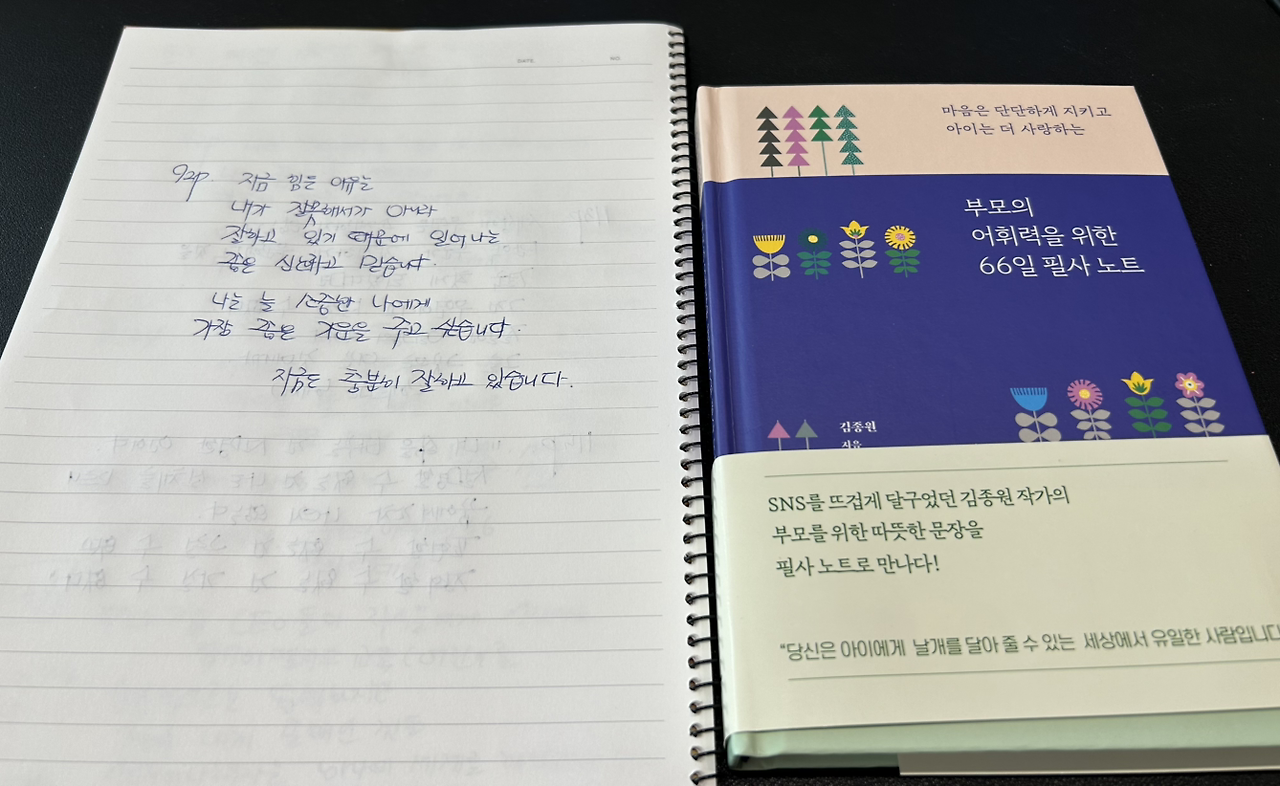 DATE.
NO.
92p. 지금 힘든 이유는
내가 잘못해서가 아니라
잘하고 있기 때문에 일어나는
좋은 신호라고 믿습니다.
나는 늘 소중한 나에게
가장 좋은 기운을 주고 싶습니다.
지금도 충분히 잘하고 있습니다.
마음은 단단하게 지키고
아이는 더 사랑하는
부모의
어휘력을 위한
66일 필사 노트
김종원
지음
SNS를 뜨겁게 달구었던 김종원 작가의
부모를 위한 따뜻한 문장을
필사 노트로 만나다!
“당신은 아이에게 날개를 달아 줄 수 있는 세상에서 유일한 사람입니다